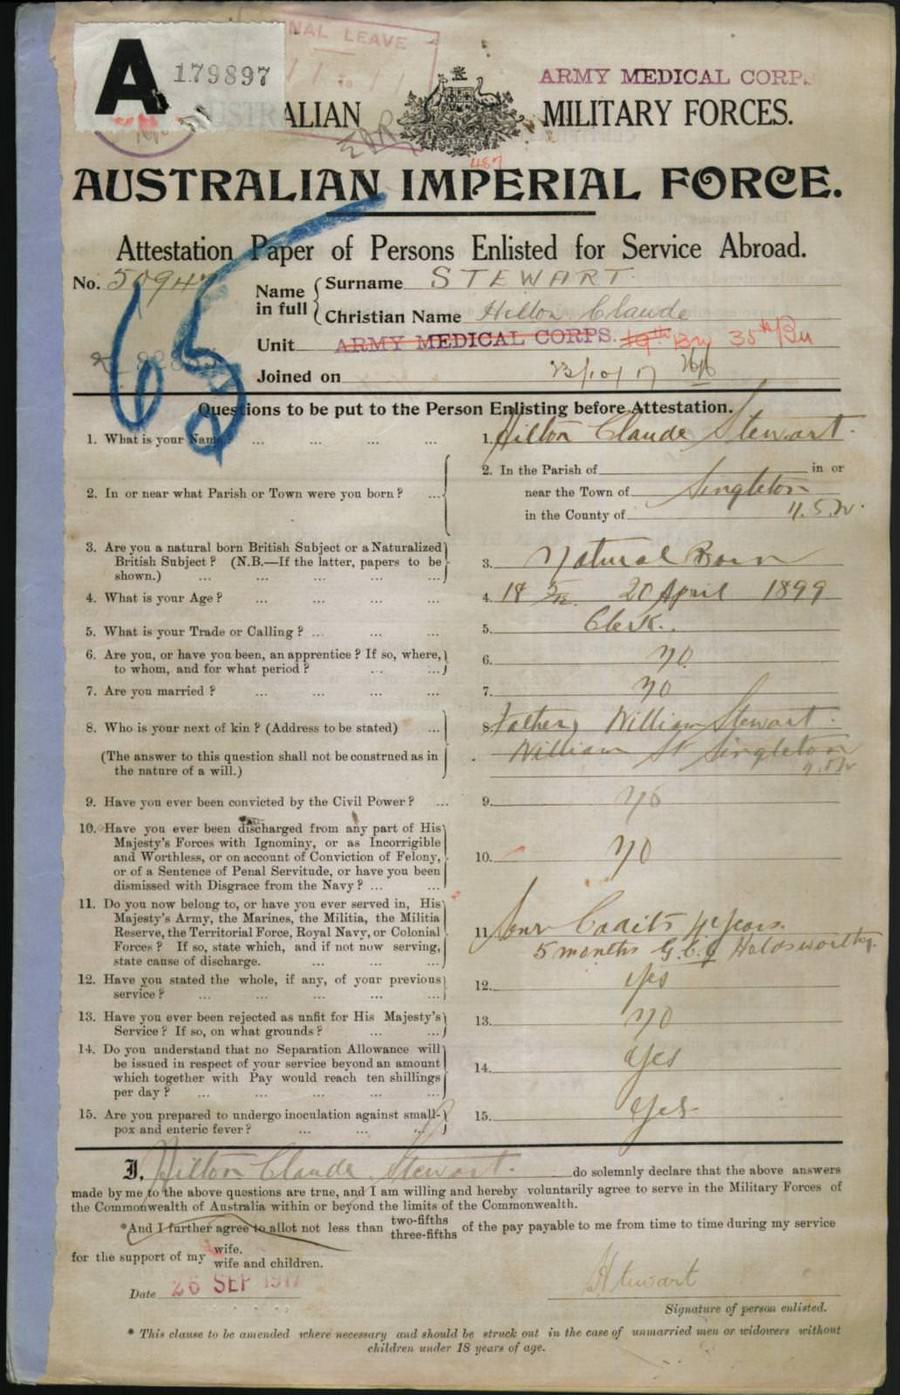 A 179897
NAL LEAVE
ARMY MEDICAL CORPS.
AUSTRALIAN MILITARY FORCES.
457
AUSTRALIAN IMPERIAL FORCE.
Attestation Paper of Persons Enlisted for Service Abroad.
No. 50947
Name in full { Surname STEWART
Christian Name Hilton Claude
Unit ARMY MEDICAL CORPS. 19th Bn 35th Bn
Joined on 23/10/17
65
Questions to be put to the Person Enlisting before Attestation.
1. What is your Name? ... ... ... ... 1. Hilton Claude Stewart.
2. In or near what Parish or Town were you born? ... 2. In the Parish of in or
near the Town of Singleton
in the County of N.S.W.
3. Are you a natural born British Subject or a Naturalized
British Subject? (N.B.—If the latter, papers to be
shown.) ... ... ... ... 3. Natural Born
4. What is your Age? ... ... ... 4. 18 5/12 20 April 1899
5. What is your Trade or Calling? ... ... ... 5. Clerk.
6. Are you, or have you been, an apprentice? If so, where,
to whom, and for what period? ... ... 6. no
7. Are you married? ... ... ... ... 7. no
8. Who is your next of kin? (Address to be stated) ... 8. Father, William Stewart.
(The answer to this question shall not be construed as in
the nature of a will.) William St Singleton
N.S.W
9. Have you ever been convicted by the Civil Power? ... 9. no
10. Have you ever been discharged from any part of His
Majesty's Forces with Ignominy, or as Incorrigible
and Worthless, or on account of Conviction of Felony,
or of a Sentence of Penal Servitude, or have you been
dismissed with Disgrace from the Navy? ... ... 10. no
11. Do you now belong to, or have you ever served in, His
Majesty's Army, the Marines, the Militia, the Militia
Reserve, the Territorial Force, Royal Navy, or Colonial
Forces? If so, state which, and if not now serving,
state cause of discharge. ... ... ... 11. Senr Cadets 4 years.
5 months G.C.G Holdsworthy.
12. Have you stated the whole, if any, of your previous
service? ... ... ... ... ... 12. yes
13. Have you ever been rejected as unfit for His Majesty's
Service? If so, on what grounds? ... ... 13. no
14. Do you understand that no Separation Allowance will
be issued in respect of your service beyond an amount
which together with Pay would reach ten shillings
per day? ... ... ... ... 14. yes
15. Are you prepared to undergo inoculation against small-
pox and enteric fever? ... ... ... 15. yes
I, Hilton Claude Stewart. do solemnly declare that the above answers
made by me to the above questions are true, and I am willing and hereby voluntarily agree to serve in the Military Forces of
the Commonwealth of Australia within or beyond the limits of the Commonwealth.
*And I further agree to allot not less than two-fifths three-fifths of the pay payable to me from time to time during my service
for the support of my wife. wife and children.
Date 26 SEP 1917 HStewart
Signature of person enlisted.
* This clause to be amended where necessary and should be struck out in the case of unmarried men or widowers without
children under 18 years of age.